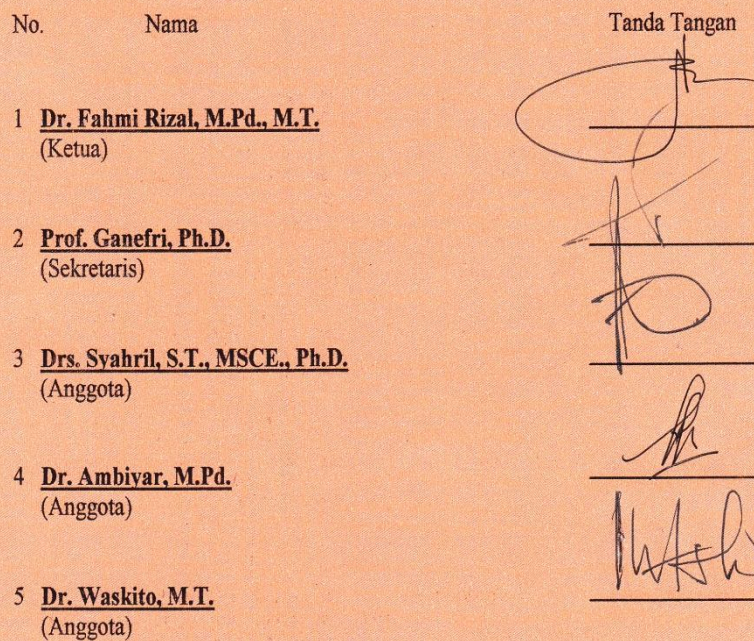 No. Nama Tanda Tangan
1 Dr. Fahmi Rizal, M.Pd., M.T.
(Ketua)
2 Prof. Ganefri, Ph.D.
(Sekretaris)
3 Drs. Syahril, S.T., MSCE., Ph.D.
(Anggota)
4 Dr. Ambiyar, M.Pd.
(Anggota)
5 Dr. Waskito, M.T.
(Anggota)